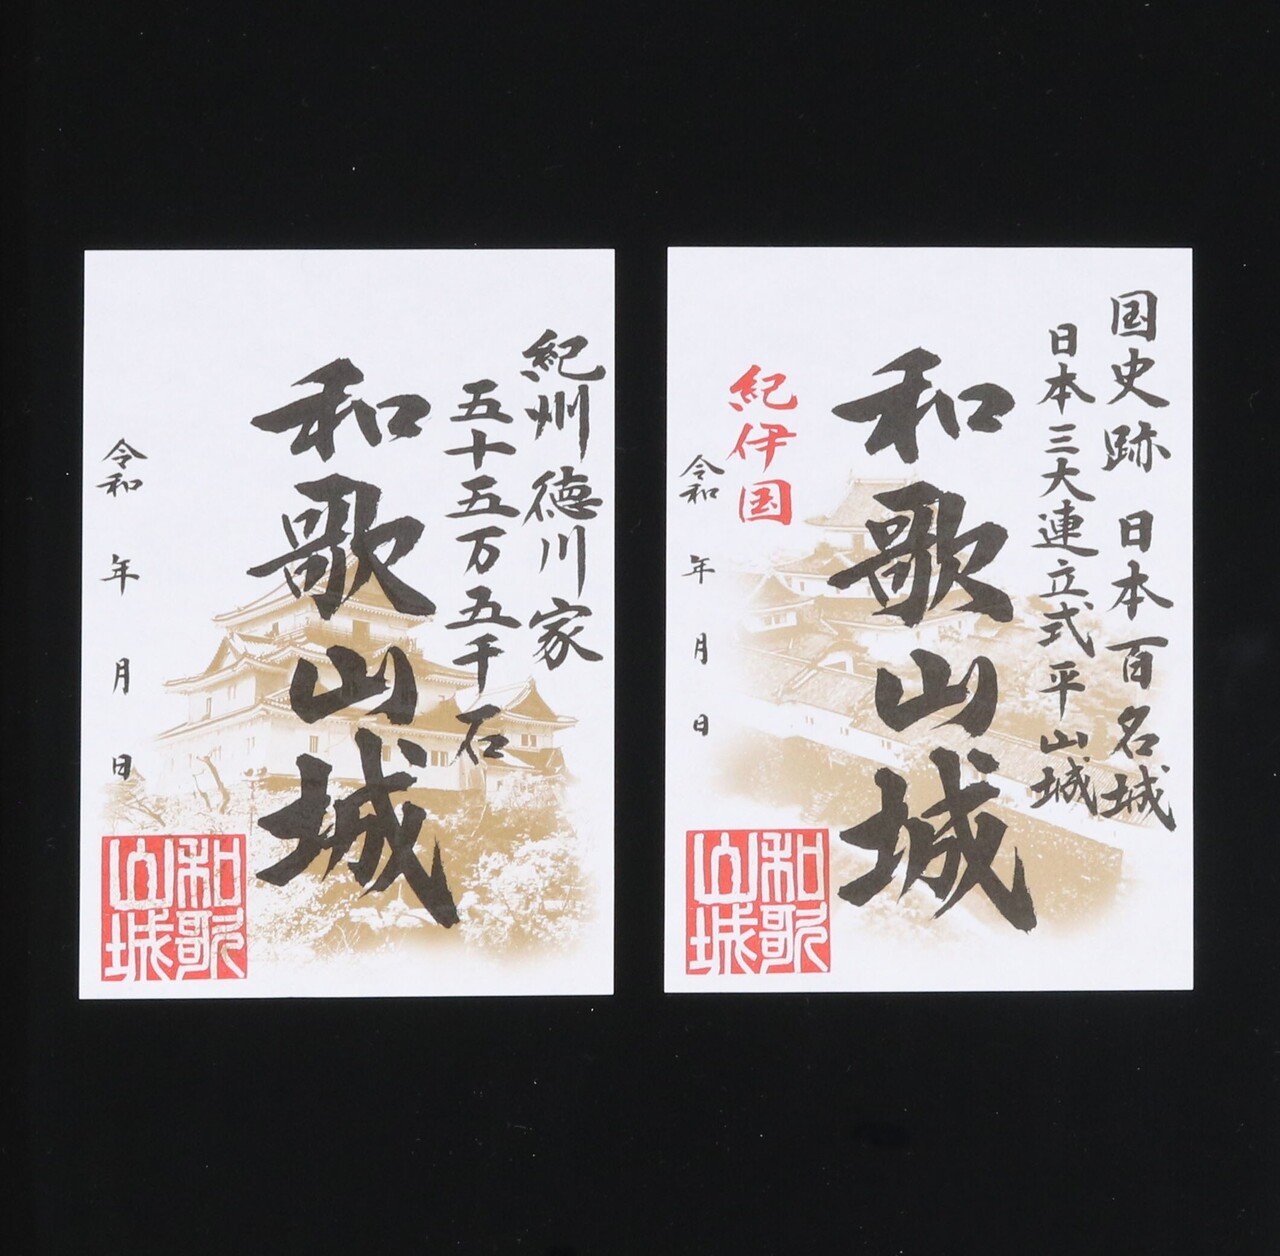 紀州徳川家
五十五万五千石
和歌山城
令和 年 月 日
和歌山城
国史跡 日本百名城
日本三大連立式平山城
和歌山城
紀伊国
令和 年 月 日
和歌山城